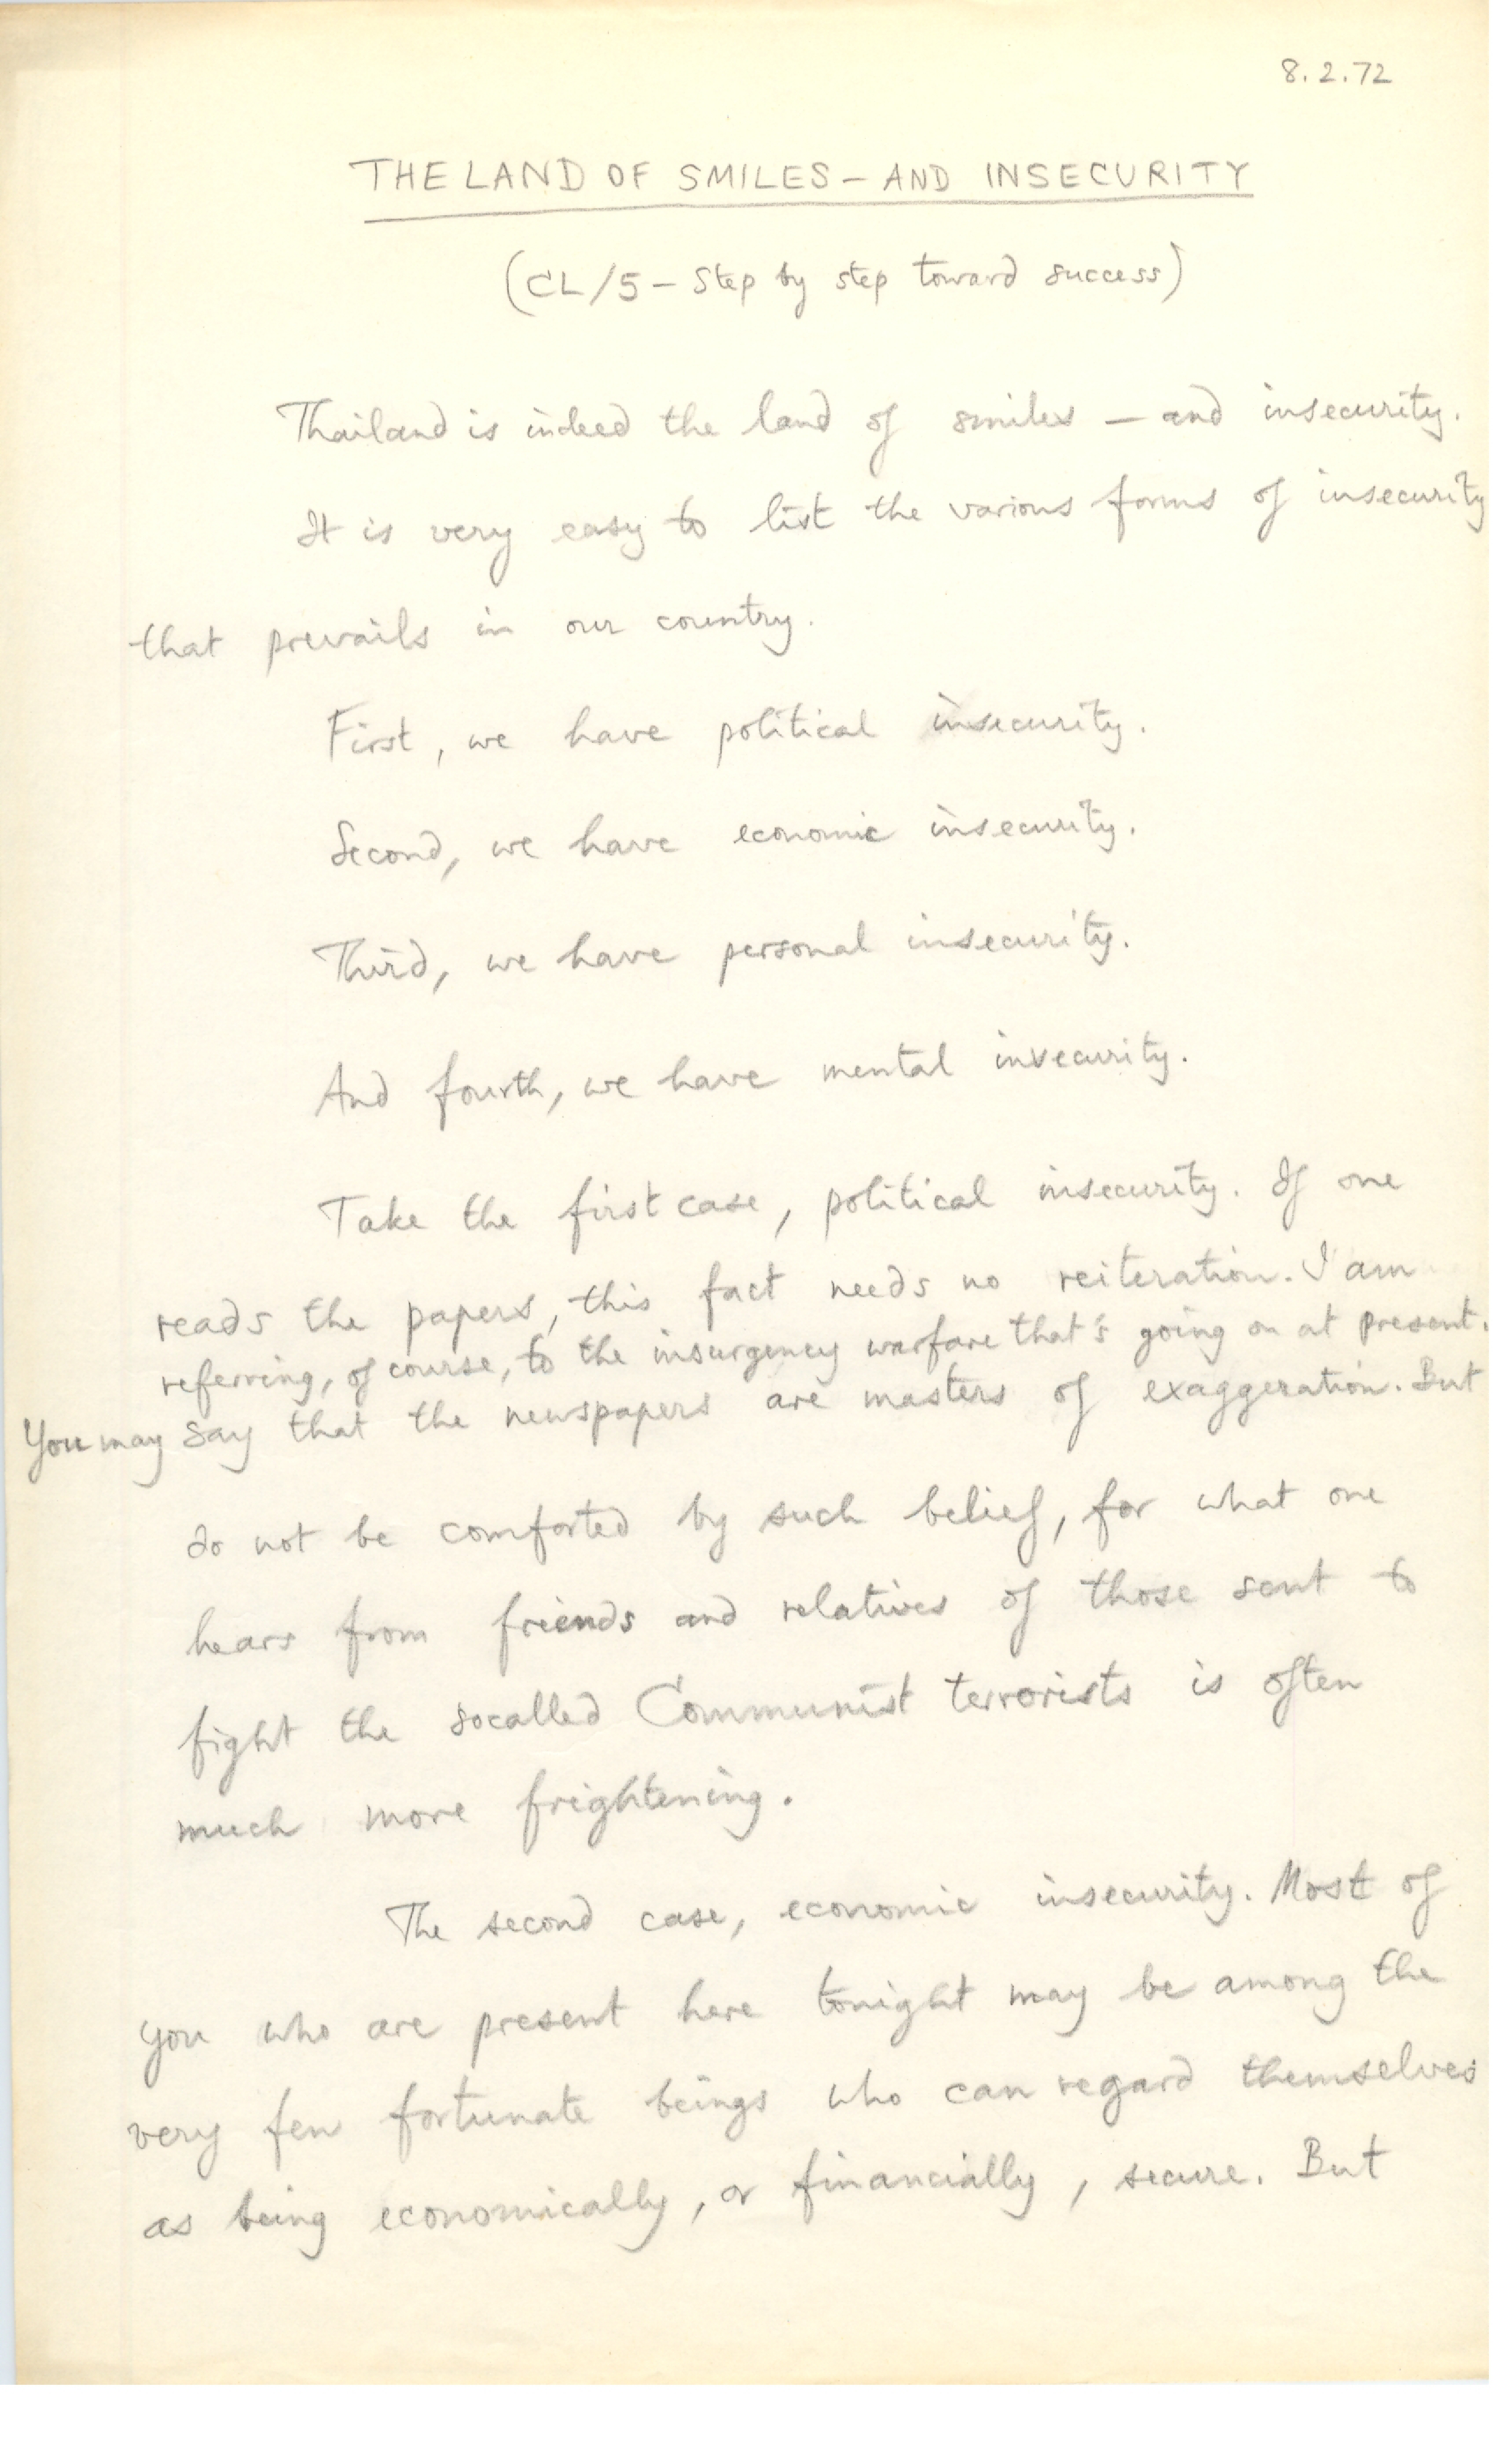 8.2.72
THE LAND OF SMILES – AND INSECURITY
(CL/5 – Step by step toward success)
Thailand is indeed the land of smiles – and insecurity.
It is very easy to list the various forms of insecurity
that prevails in our country.
First, we have political insecurity.
Second, we have economic insecurity.
Third, we have personal insecurity.
And fourth, we have mental insecurity.
Take the first case, political insecurity. If one
reads the papers, this fact needs no reiteration. I am
referring, of course, to the insurgency warfare that's going on at present.
You may say that the newspapers are masters of exaggeration. But
do not be comforted by such belief, for what one
hears from friends and relatives of those sent to
fight the socalled Communist terrorists is often
much more frightening.
The second case, economic insecurity. Most of
you who are present here tonight may be among the
very few fortunate beings who can regard themselves
as being economically, or financially, secure. But